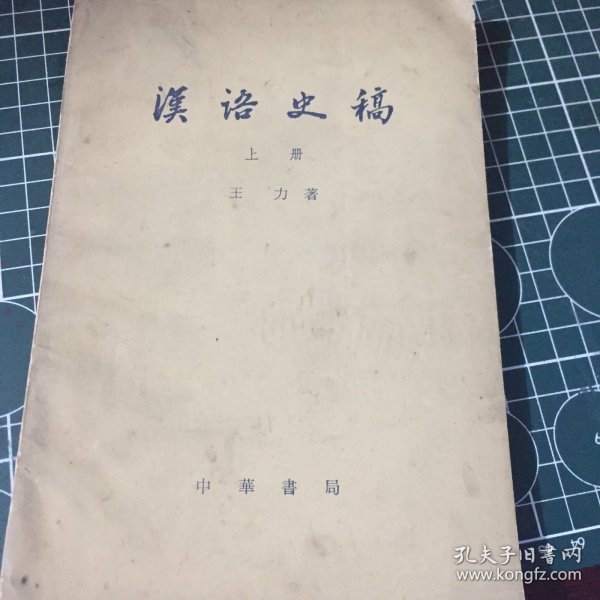 漢語史稿
上册
王力著
中華書局
孔夫子旧書网
www.kongfz.com